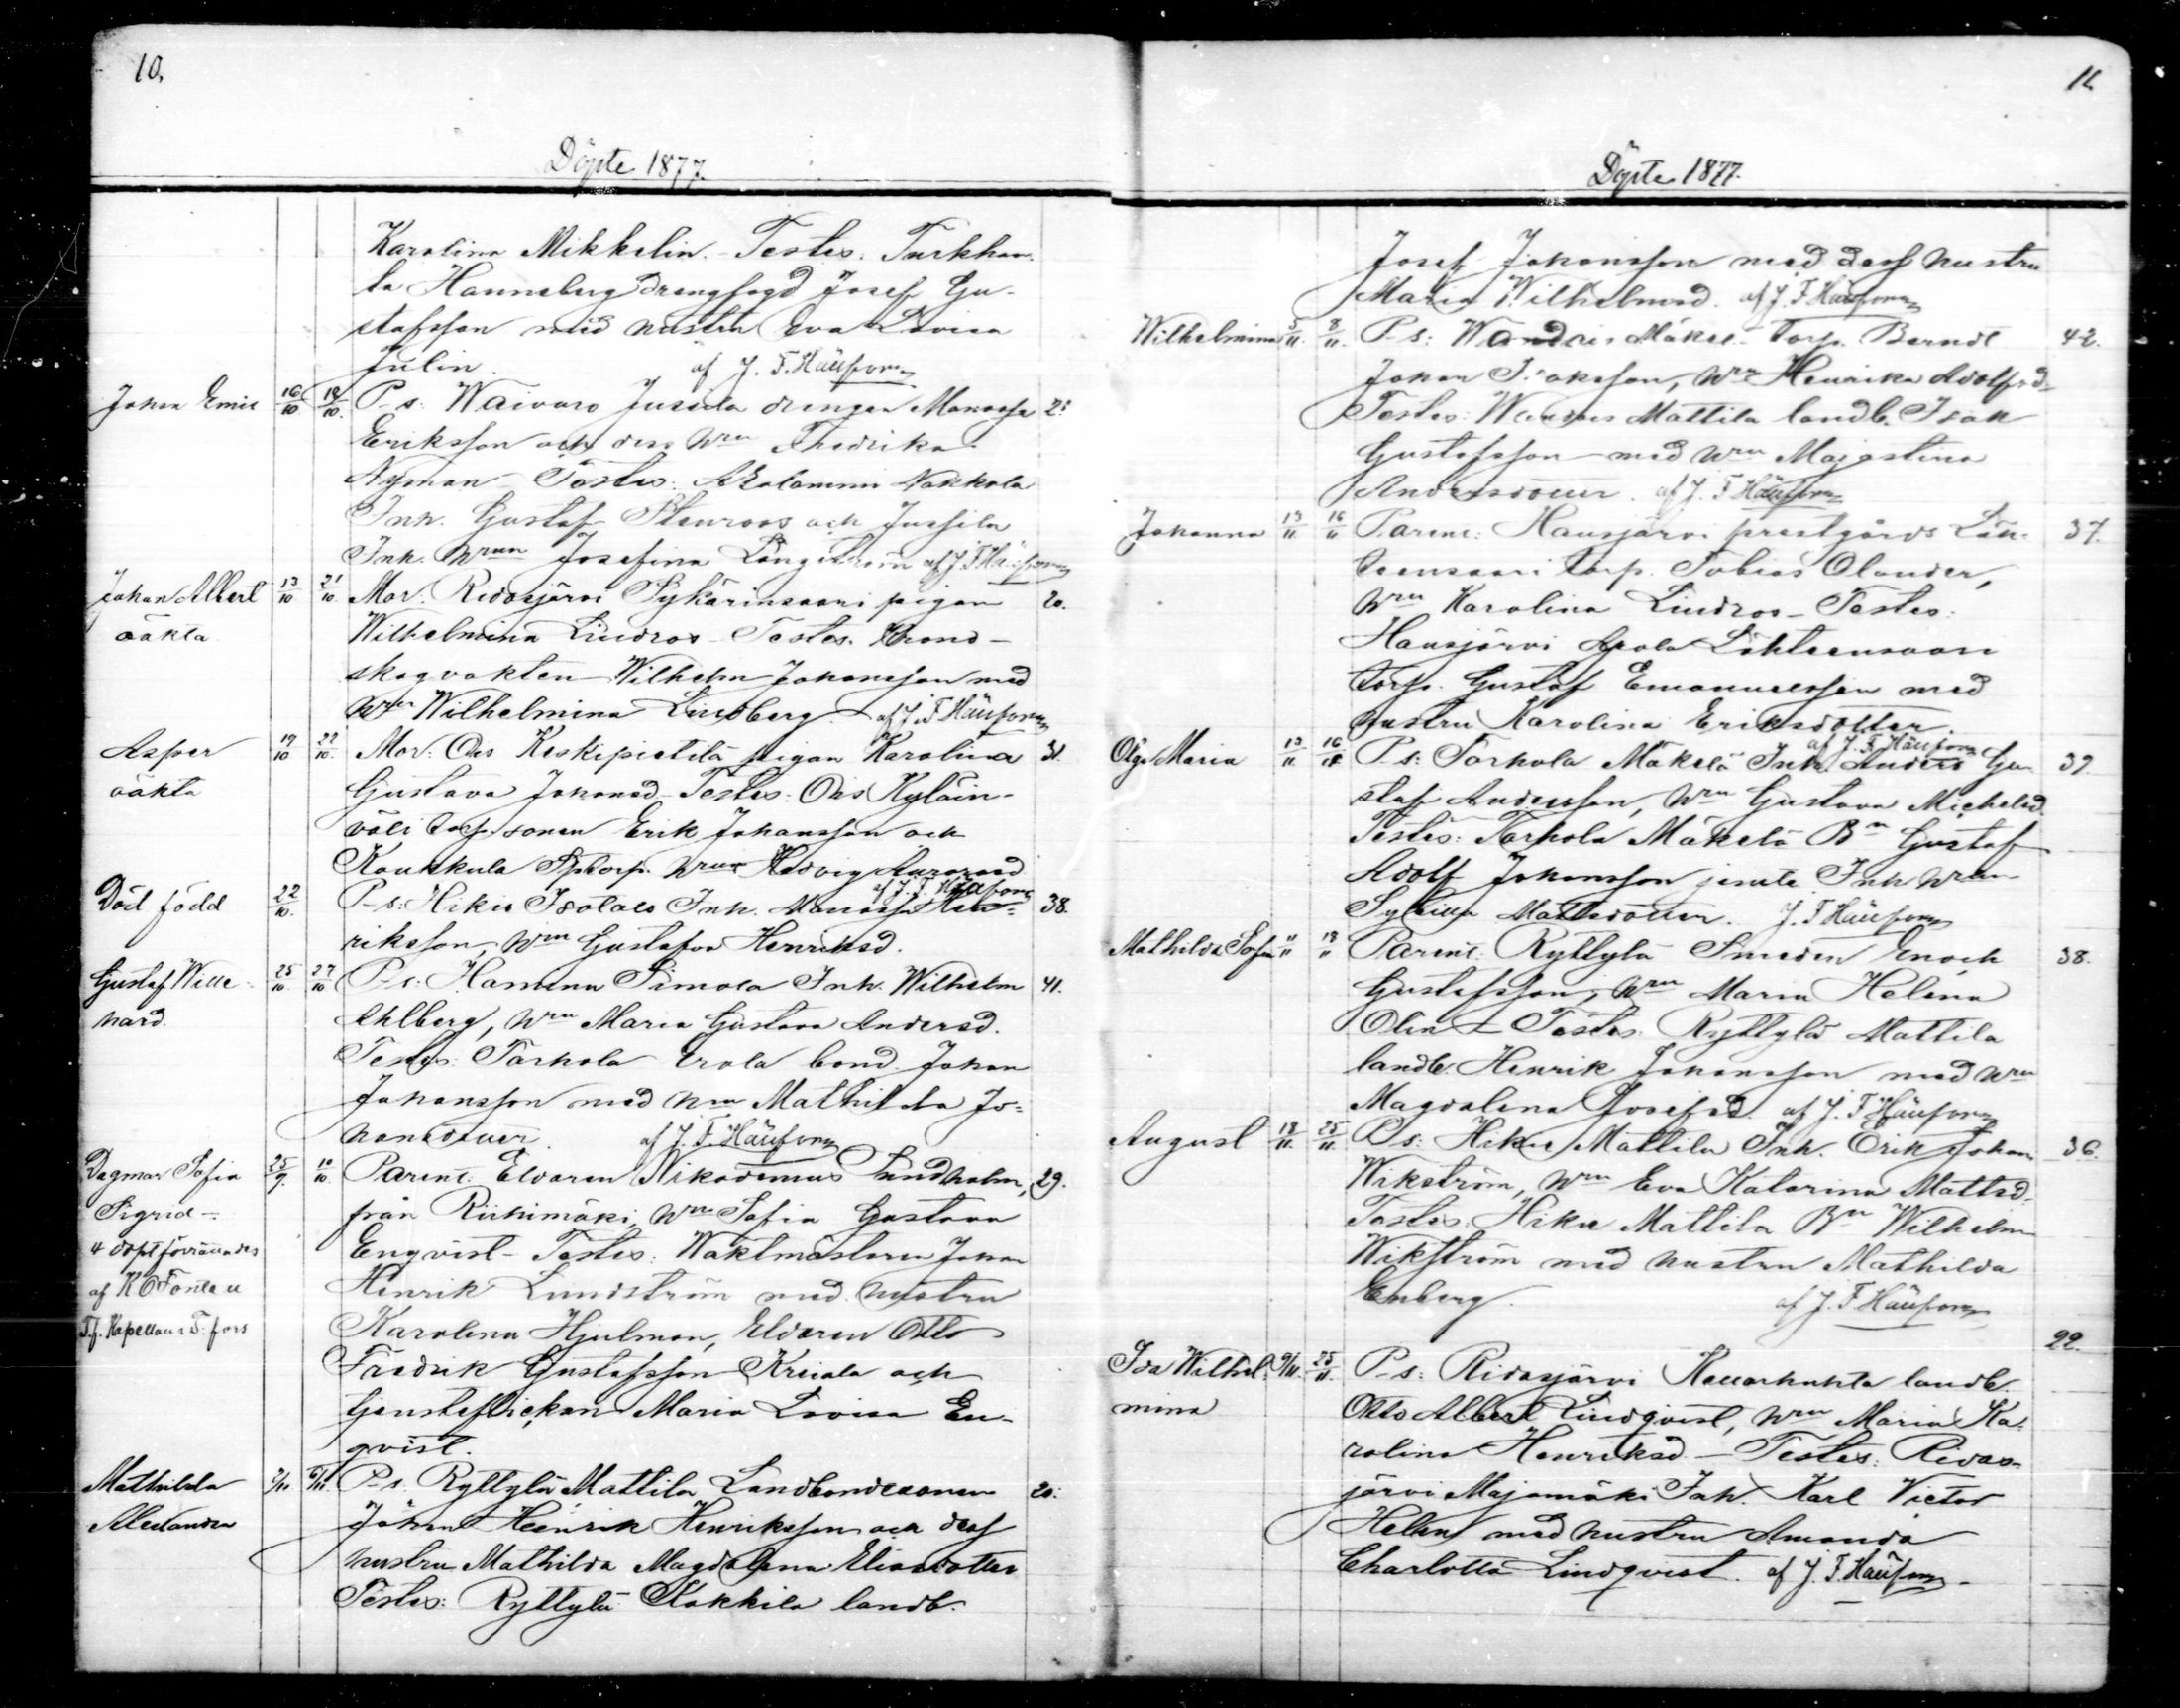 10.
Döpte 1877.
Karolina Mikkelin. - Testes: Turkhau-
ta Hanneberg drengfogd Josef Gu-
stafsson med hustru Eva Lovisa
Julin. af J. F. Häüfom
Johan Emil 16/10 18/10. P-s: Waivaro Jussila drengen Manasse
Eriksson och dess hru Fredrika
Nyman - Testes: Nakkola
Inh. Gustaf Stenroos och Jussila
Inh. hrun Josefina Långström af J. F. Häüfom
Johan Albert 13/10 21/10. Mor: Ridasjärvi Sykärinsaari pigan 20.
oäkta Wilhelmina Lindros - Testes: Krono-
skogvakten Wilhelm Johansson med
hru Wilhelmina Lindberg. - af J. F. Häüfom
Asper 19/10 22/10. Mor: Ois Keskipietilä pigan Karolina 31.
oäkta Gustava Johansd - Testes: Ois Kyläin-
väli torp.sonen Erik Johansson och
Kaukkula torp. hrun Hedvig
af J. F. Häüfom
Död född 22/10. P-s: Hikiä Isotalo Inh. Manasse Hen- 38.
riksson, hru Gustafva Henriksd.
Gustaf Wille- 25/10. 27/10 P-s: Hamina Simola Inh. Wilhelm 41.
hard. Ahlberg, hru Maria Gustava Andersd.
Testes: Torhola Erola bond. Johan
Johansson med hru Mathilda Jo-
hansdotter. af J. F. Häüfom
Dagmar Sofia 25/9. 10/10 Parent: Eldaren Nikodemus Lindholm, 29.
Sigrid - från Riihimäki, hru Sofia Gustava
dopt förrättades Enqvist - Testes: Waktmästaren Johan
af K O Henrik Lundström med hustru
T.f. Kapellan i T: fors Karolina Hjulman, Eldaren Otto
Fredrik Gustafsson Kruala och
Maria Lovisa En-
qvist.
Mathilda 2/11. 6/11 P-s. Ryttylä Mattila Landbondesonen 20.
Alexandra Johan Henrik Henriksson och dess
hustru Mathilda Magdalena Eliasdotter
Testes: Ryttylä Kokkila landb.
11.
Döpte 1877.
Josef Johansson med dess hustru
Maria Wilhelmsd. af J. F. Häüfom
Wilhelmina 5/11. 8/11. P-s: Mäkel- torp. Berndt 42.
Johan Isaksson, hru Henrika Adolfsd.
Testes: Mattila landb. Isak
Gustafsson med hru Majastina
Andersdotter. af J. F. Häüfom
Johanna 13/11 16/11 Parent: Hausjärvi prestgårds Läh- 37.
teensaari torp. Tobias Olander,
hru Karolina Lindros - Testes:
Hausjärvi Lähteensaari
torp. Gustaf Emanuelsson med
hustru Karolina Eriksdotter.
af J. F. Häüfom
Olga Maria 12/11. 16/11 P-s: Torhola Mäkelä Inh. Anders Gu- 39.
staf Andersson, hru Gustava Michelsd.
Testes: Torhola Mäkelä Bn Gustaf
Adolf Johansson jemte Inh hrun
Matsdotter. J. F. Häüfom
Mathilda Sofia 11/11 18/11 Parent: Ryttylä Smeden Enoch 38.
Gustafsson, hru Maria Helena
Olin - Testes: Ryttylä Mattila
landb. Henrik Johansson med hru
Magdalena Josefsd. af J. F. Häüfom
August 18/11. 25/11. P-s: Hikiä Mattila Inh. Erik Johan 36.
Wikström, hru Eva Katarina Mattsd.
Testes: Hikiä Mattila Bn Wilhelm
Wikström med hustru Mathilda
Enberg. af J. F. Häüfom
Ida Wilhel- 9/11. 25/11. P-s: Ridasjärvi landb. 22.
mina Otto Albert Lindqvist, hru Maria Ka-
rolina Henriksd - Testes: Ridas-
järvi Majamäki Inh. Karl Victor
Helen med hustru Amanda
Charlotta Lindqvist. af J. F. Häüfom